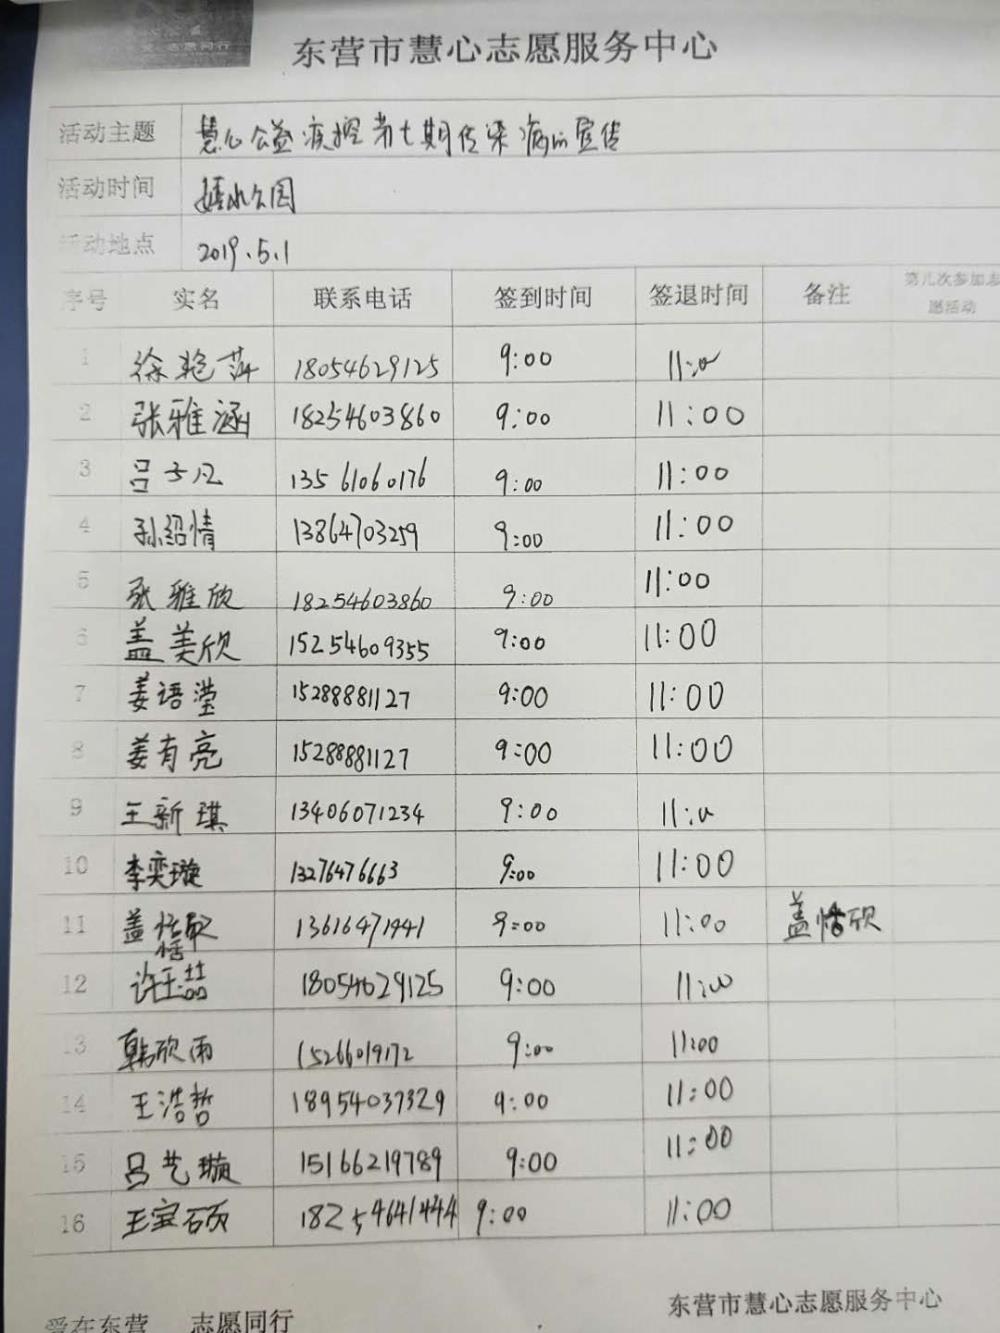 志愿同行
东营市慧心志愿服务中心
活动主题 慧心公益疾控第七期传染病的宣传
活动时间 嬉水公园
活动地点 2019.5.1
序号 实名 联系电话 签到时间 签退时间 备注 第几次参加志愿活动
1 徐艳萍 18054629125 9:00 11:00
2 张雅涵 18254603860 9:00 11:00
3 吕子凡 13561060176 9:00 11:00
4 孙绍情 13864703259 9:00 11:00
5 张雅欣 18254603860 9:00 11:00
6 盖美欣 15254609355 9:00 11:00
7 姜语滢 15288881127 9:00 11:00
8 姜有亮 15288881127 9:00 11:00
9 王新琪 13406071234 9:00 11:00
10 李奕璇 13276476663 9:00 11:00
11 盖恬欣 13616471941 9:00 11:00 盖恬欣
12 许玉喆 18054629125 9:00 11:00
13 韩欣雨 15266019172 9:00 11:00
14 王浩哲 18954037329 9:00 11:00
15 吕艺璇 15166219789 9:00 11:00
16 王宝硕 18254641444 9:00 11:00
爱在东营 志愿同行 东营市慧心志愿服务中心